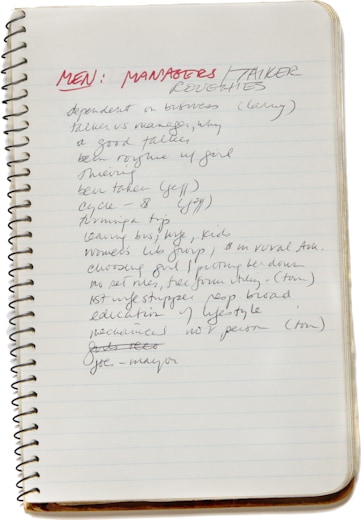 MEN: MANAGERS / TALKER
ROUGHIES
dependent on business (larry)
talker vs manager, why
a good talker
been w/ girl
thieving
been taken (jeff)
cycle - $ (jeff)
turning a trip
leaving bus, wife, kids
women's lib group, $ in rural Am.
choosing girl / putting her down
no set rules, free form they. (tom)
1st wife stripper resp. broad
education of lifestyle
mechanical not person (tom)
joe - mayor